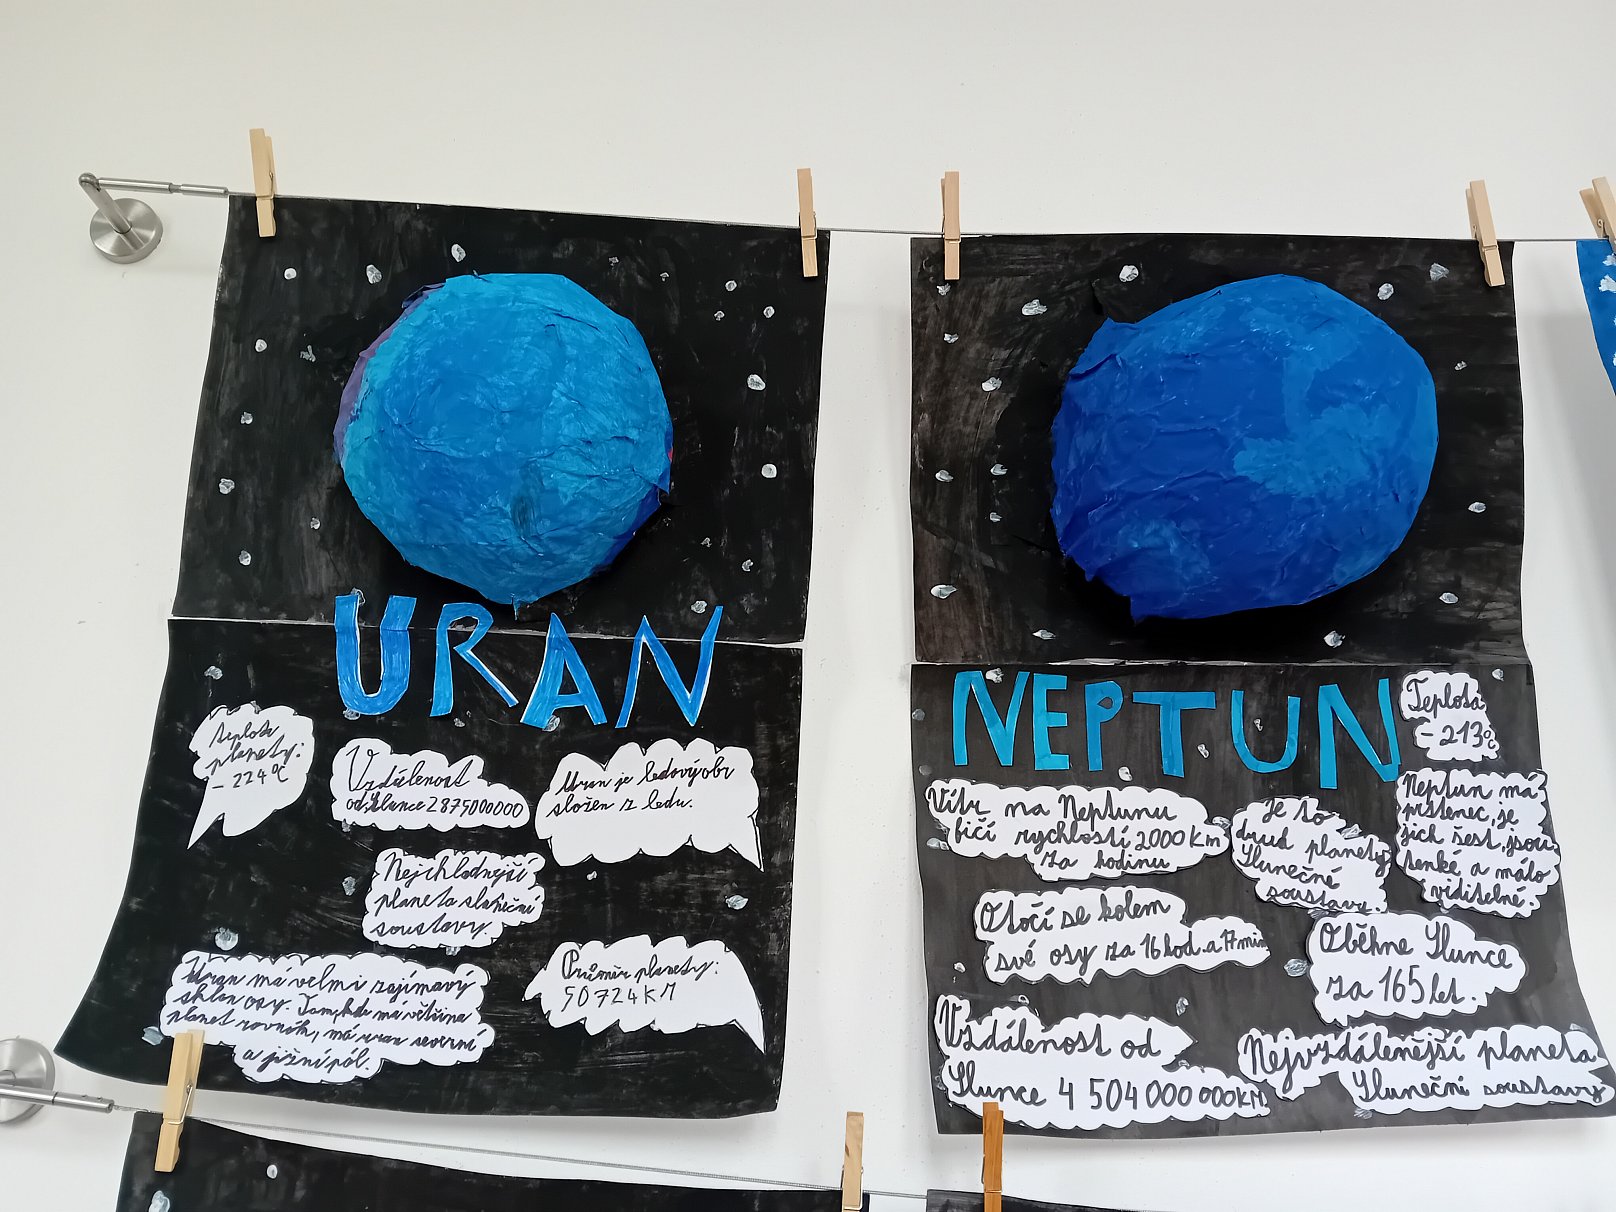 URAN
teplota
planety:
- 224°C
Vzdálenost
od Slunce 2875000000
Uran je ledový obr
složen z ledu.
Nejchladnější
planeta sluneční
soustavy.
Uran má velmi zajímavý
sklon osy. Tam, kde má většina
planet rovník, má uran severní
a jižní pól.
Průměr planety:
50724KM
NEPTUN
Teplota
- 213°C
Vítr na Neptunu
fičí rychlostí 2000 Km
za hodinu
Je to
druh planety
Slunečné
soustavy.
Neptun má
prstenec, je
jich šest, jsou
tenké a málo
viditelné.
Otočí se kolem
své osy za 16 hod. a 17 min
Oběhne Slunce
za 165 let.
Vzdálenost od
Slunce 4 504 000 000KM.
Nejvzdálenější planeta
Sluneční soustavy